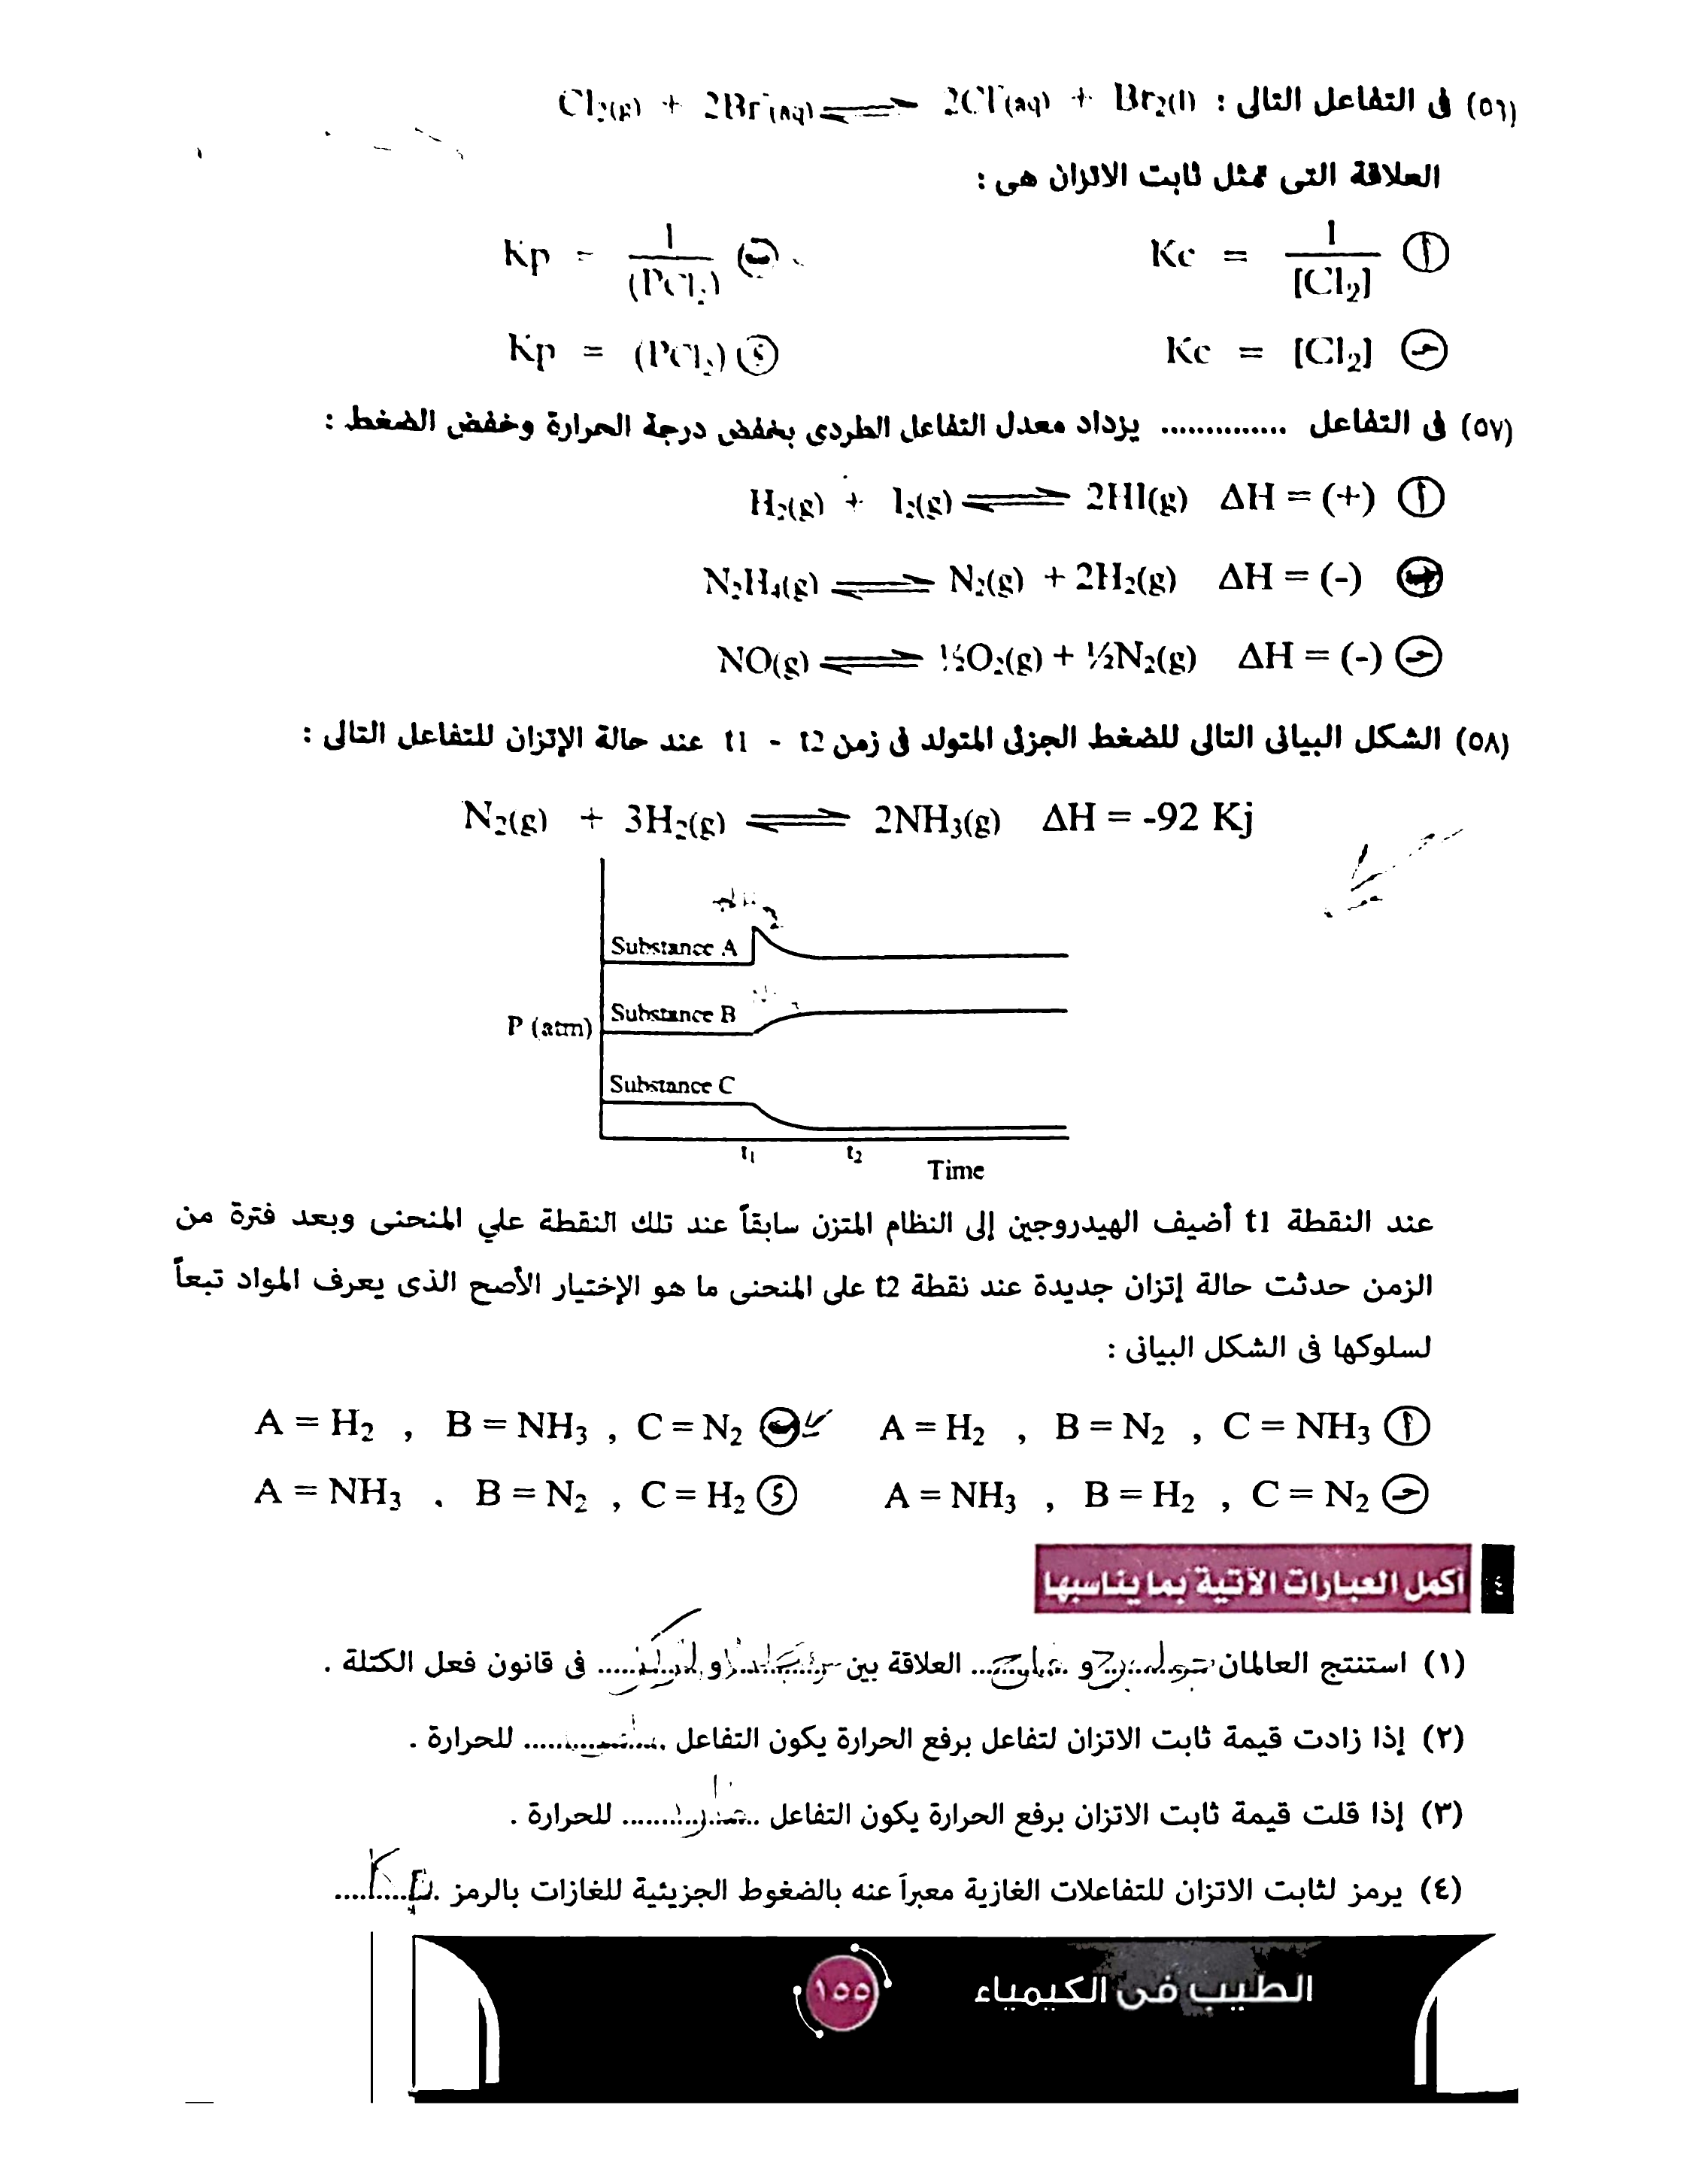 (٥٦) فى التفاعل التالى : Cl₂(g) + 2Br⁻(aq) ⇌ 2Cl⁻(aq) + Br₂(l)
العلاقة التى تمثل ثابت الاتزان هى :
(أ) Kc = 1/[Cl₂] (ب) Kp = 1/(PCl₂)
(جـ) Kc = [Cl₂] (د) Kp = (PCl₂)
(٥٧) فى التفاعل .............. يزداد معدل التفاعل الطردى بخفض درجة الحرارة وخفض الضغط :
(أ) H₂(g) + I₂(g) ⇌ 2HI(g) ΔH = (+)
(ب) N₂H₄(g) ⇌ N₂(g) + 2H₂(g) ΔH = (-)
(جـ) NO(g) ⇌ ½O₂(g) + ½N₂(g) ΔH = (-)
(٥٨) الشكل البيانى التالى للضغط الجزئى المتولد فى زمن t1 - t2 عند حالة الإتزان للتفاعل التالى :
N₂(g) + 3H₂(g) ⇌ 2NH₃(g) ΔH = -92 Kj
Substance A
Substance B
P (atm)
Substance C
t₁ t₂
Time
عند النقطة t1 أضيف الهيدروجين إلى النظام المتزن سابقاً عند تلك النقطة علي المنحنى وبعد فترة من
الزمن حدثت حالة إتزان جديدة عند نقطة t2 على المنحنى ما هو الإختيار الأصح الذى يعرف المواد تبعاً
لسلوكها فى الشكل البيانى :
(أ) A = H₂ , B = N₂ , C = NH₃ (ب) A = H₂ , B = NH₃ , C = N₂
(جـ) A = NH₃ , B = H₂ , C = N₂ (د) A = NH₃ . B = N₂ , C = H₂
٤ أكمل العبارات الآتية بما يناسبها
(١) استنتج العالمان جولدبرج و فاج العلاقة بين و فى قانون فعل الكتلة .
(٢) إذا زادت قيمة ثابت الاتزان لتفاعل برفع الحرارة يكون التفاعل ............ للحرارة .
(٣) إذا قلت قيمة ثابت الاتزان برفع الحرارة يكون التفاعل طارد للحرارة .
(٤) يرمز لثابت الاتزان للتفاعلات الغازية معبراً عنه بالضغوط الجزيئية للغازات بالرمز Kp
الطبيب فى الكيمياء ١٥٥